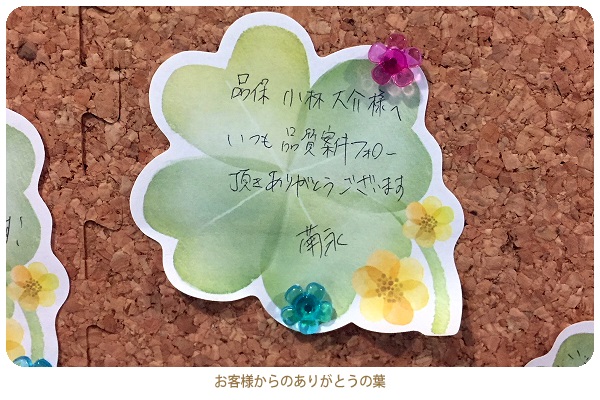 品保 小林 大介様へ
いつも 品質案件フォロー
頂きありがとうございます
南永
す!
お客様からのありがとうの葉